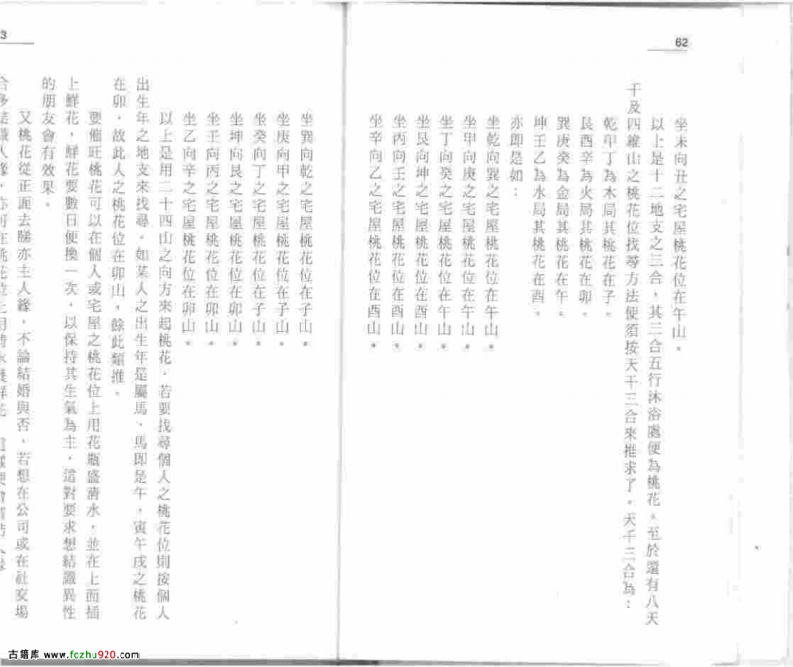 62
坐未向丑之宅屋桃花位在午山。
以上是十二地支之三合，其三合五行沐浴處便為桃花。至於還有八天
干及四維山之桃花位找尋方法便須按天干三合來推求了。天干三合為：
乾甲丁為木局其桃花在子。
艮丙辛為火局其桃花在卯。
巽庚癸為金局其桃花在午。
坤壬乙為水局其桃花在酉。
亦即是如：
坐乾向巽之宅屋桃花位在午山。
坐甲向庚之宅屋桃花位在午山。
坐丁向癸之宅屋桃花位在午山。
坐艮向坤之宅屋桃花位在酉山。
坐丙向壬之宅屋桃花位在酉山。
坐辛向乙之宅屋桃花位在酉山。
3
坐巽向乾之宅屋桃花位在子山。
坐庚向甲之宅屋桃花位在子山。
坐癸向丁之宅屋桃花位在子山。
坐坤向艮之宅屋桃花位在卯山。
坐壬向丙之宅屋桃花位在卯山。
坐乙向辛之宅屋桃花位在卯山。
以上是用二十四山之向方來起桃花，若要找尋個人之桃花位則按個人
出生年之地支來找尋。如某人之出生年是屬馬，馬即是午，寅午戌之桃花
在卯，故此人之桃花位在卯山，餘此類推。
要催旺桃花可以在個人或宅屋之桃花位上用花瓶盛清水，並在上面插
上鮮花，鮮花要數日便換一次，以保持其生氣為主，這對要求想結識異性
的朋友會有效果。
又桃花從正面去睇亦主人緣，不論結婚與否，若想在公司或在社交場
古籍库 www.fczhu920.com